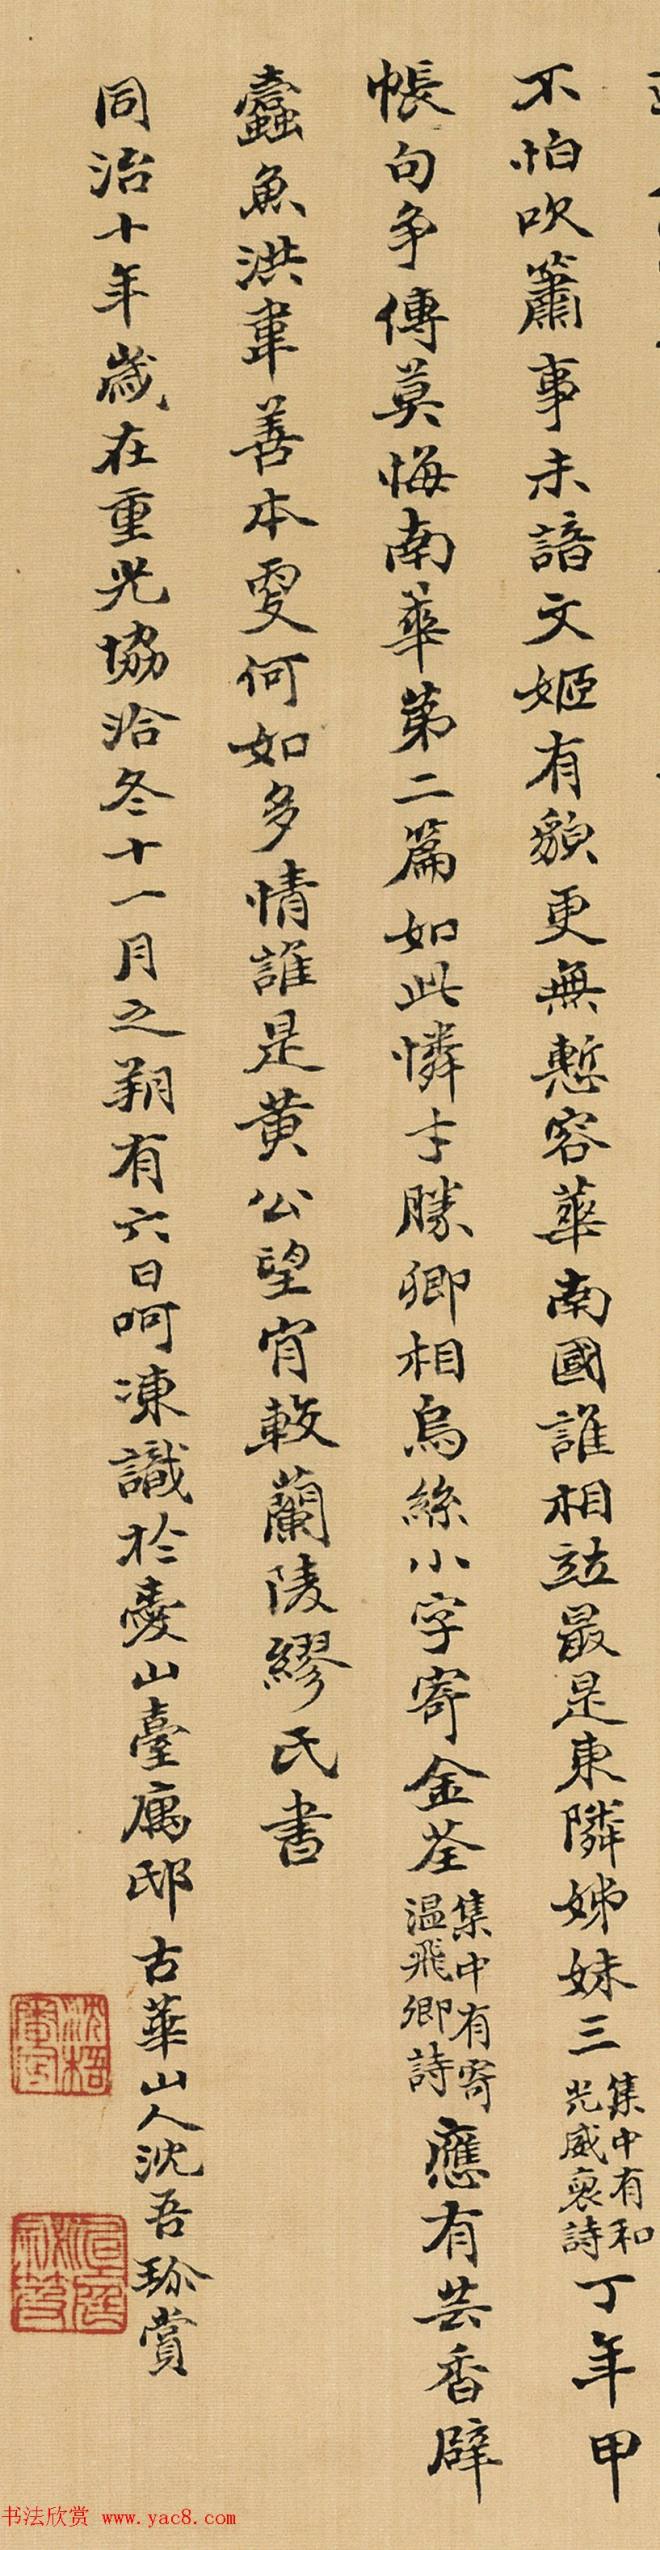 不怕吹簫事未諳文姬有貌更無慙容華南國誰相竝最是東隣姊妹三集中有和光威裒詩丁年甲
帳句爭傳莫悔南華第二篇如此憐才勝卿相烏絲小字寄金荃集中有寄溫飛卿詩應有芸香辟
蠹魚洪韋善本夐何如多情誰是黃公望肎較蘭陵繆氏書
同治十年歲在重光協洽冬十一月之朔有六日呵凍識於臺寓邸古華山人沈吾珎賞
书法欣赏 www.yac8.com